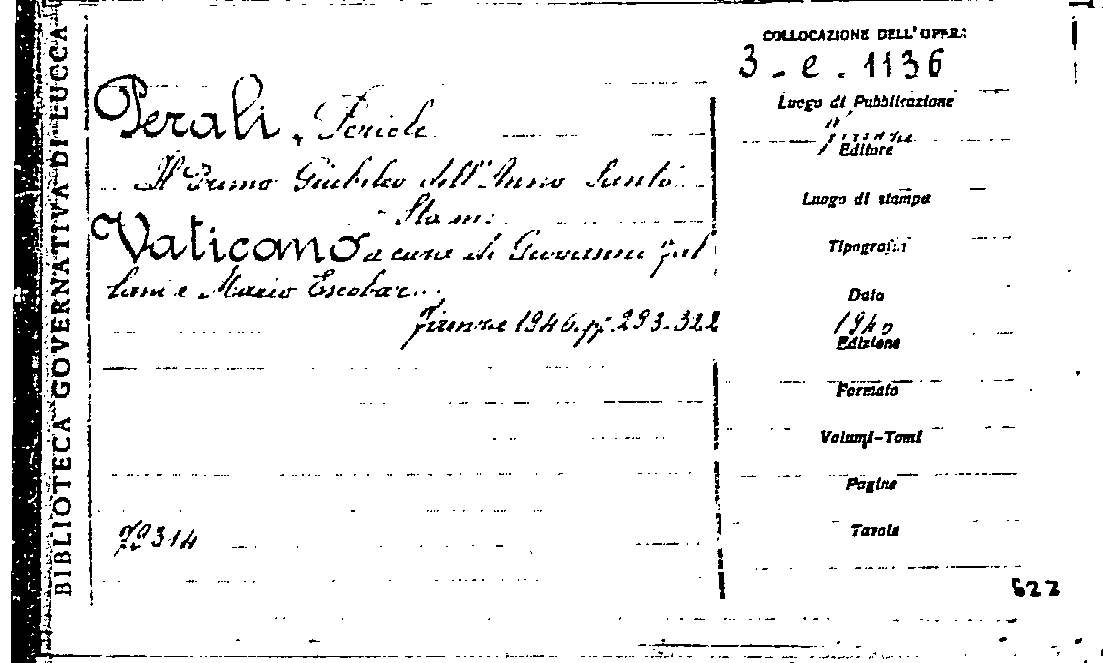 BIBLIOTECA GOVERNATIVA DI LUCCA
COLLOCAZIONE DELL'OPERA
3 - e . 1136
Perali, Pericle
Il Primo Giubileo dell'Anno Santo
Sta in:
Vaticano a cura di Giovanni Fal
lani e Mario Escobar...
Firenze 1946. pp. 293-322
79314
Luogo di Pubblicazione
Firenze
Editore
Luogo di stampa
Tipografia
Data
1946
Edizione
Formato
Volumi-Tomi
Pagine
Tavole
622